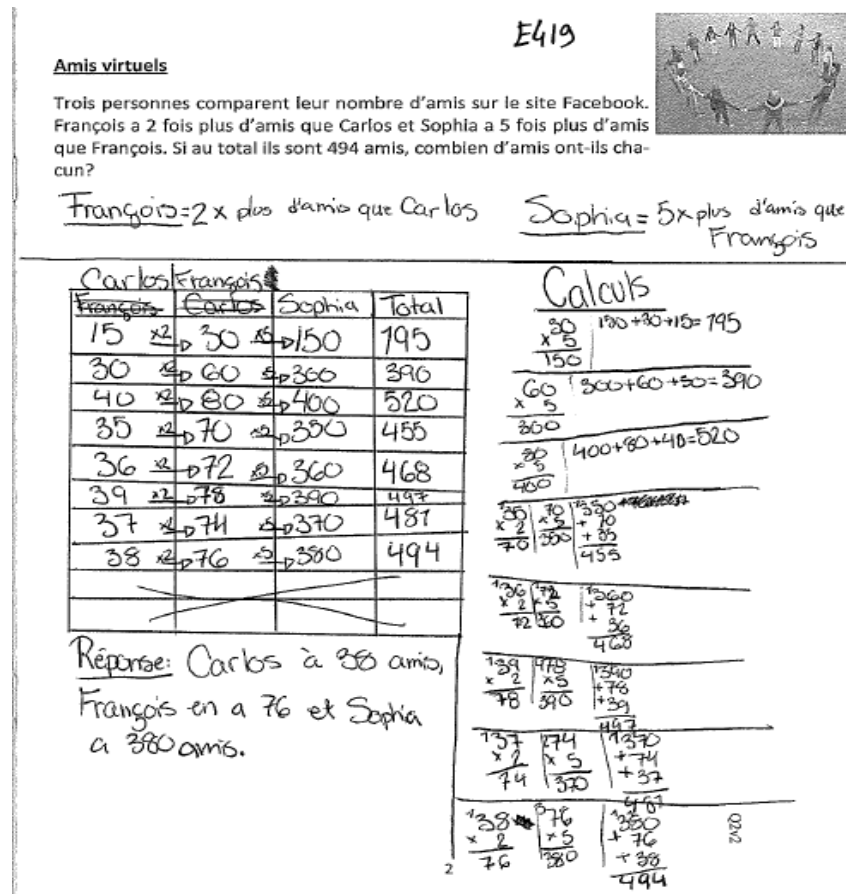 E419
Amis virtuels
Trois personnes comparent leur nombre d'amis sur le site Facebook.
François a 2 fois plus d'amis que Carlos et Sophia a 5 fois plus d'amis
que François. Si au total ils sont 494 amis, combien d'amis ont-ils cha-
cun?
François=2x plus d'amis que Carlos
Sophia= 5x plus d'amis que
François
Carlos François
François Carlos Sophia Total
15 x2 30 x5 150 195
30 x2 60 x5 300 390
40 x2 80 x5 400 520
35 x2 70 x5 350 455
36 x2 72 x5 360 468
39 x2 78 x5 390 497
37 x2 74 x5 370 481
38 x2 76 x5 380 494
Réponse: Carlos à 38 amis,
François en a 76 et Sophia
a 380 amis.
Calculs
30 150+30+15=195
x 5
150
60 300+60+30=390
x 5
300
80 400+80+40=520
x 5
400
35 70 350
x 2 x 5 + 70
70 350 + 35
455
36 72 360
x 2 x 5 + 72
72 360 + 36
468
39 78 390
x 2 x 5 + 78
78 390 + 39
497
37 74 370
x 2 x 5 + 74
74 370 + 37
481
38 76 380
x 2 x 5 + 76
76 380 + 38
494
2
Q2V2